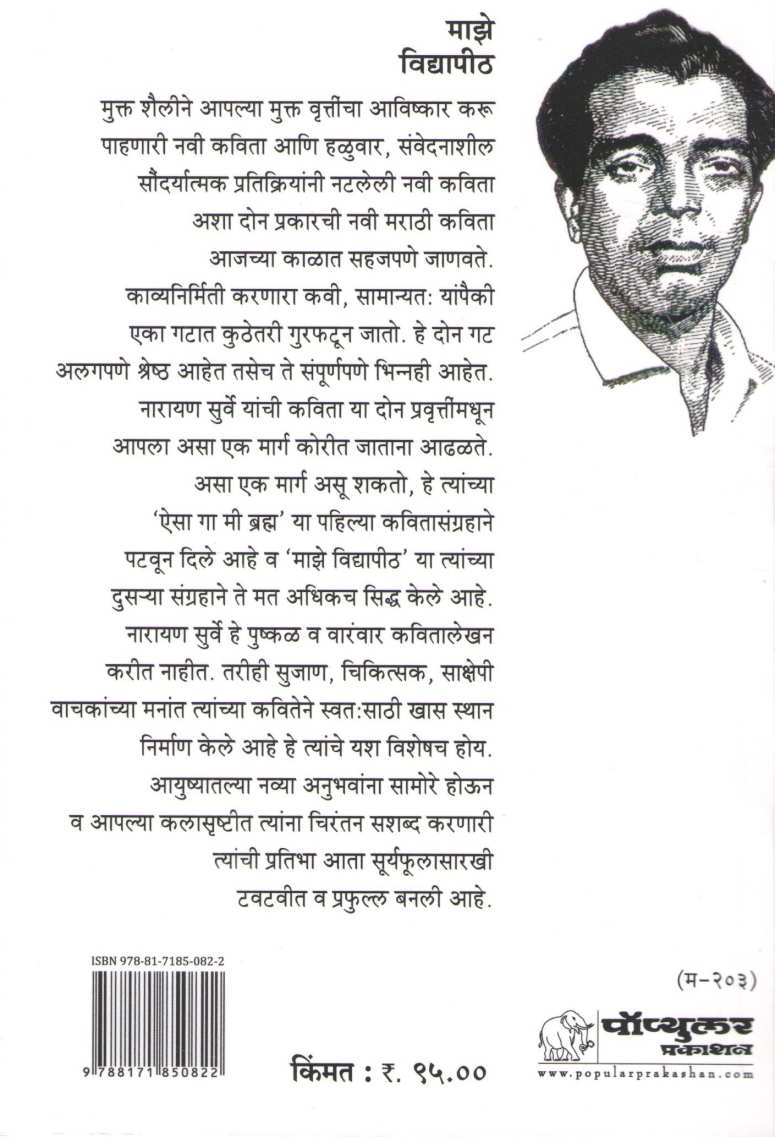 माझे
विद्यापीठ
मुक्त शैलीने आपल्या मुक्त वृत्तींचा आविष्कार करू
पाहणारी नवी कविता आणि हळुवार, संवेदनाशील
सौंदर्यात्मक प्रतिक्रियांनी नटलेली नवी कविता
अशा दोन प्रकारची नवी मराठी कविता
आजच्या काळात सहजपणे जाणवते.
काव्यनिर्मिती करणारा कवी, सामान्यतः यांपैकी
एका गटात कुठेतरी गुरफटून जातो. हे दोन गट
अलगपणे श्रेष्ठ आहेत तसेच ते संपूर्णपणे भिन्नही आहेत.
नारायण सुर्वे यांची कविता या दोन प्रवृत्तींमधून
आपला असा एक मार्ग कोरीत जाताना आढळते.
असा एक मार्ग असू शकतो, हे त्यांच्या
‘ऐसा गा मी ब्रह्म’ या पहिल्या कवितासंग्रहाने
पटवून दिले आहे व ‘माझे विद्यापीठ’ या त्यांच्या
दुसऱ्या संग्रहाने ते मत अधिकच सिद्ध केले आहे.
नारायण सुर्वे हे पुष्कळ व वारंवार कवितालेखन
करीत नाहीत. तरीही सुजाण, चिकित्सक, साक्षेपी
वाचकांच्या मनांत त्यांच्या कवितेने स्वतःसाठी खास स्थान
निर्माण केले आहे हे त्यांचे यश विशेषच होय.
आयुष्यातल्या नव्या अनुभवांना सामोरे होऊन
व आपल्या कलासृष्टीत त्यांना चिरंतन सशब्द करणारी
त्यांची प्रतिभा आता सूर्यफूलासारखी
टवटवीत व प्रफुल्ल बनली आहे.
ISBN 978-81-7185-082-2
9 788171 850822
किंमत : रु. ९५.००
(म-२०३)
पॉप्युलर
प्रकाशन
www.popularprakashan.com